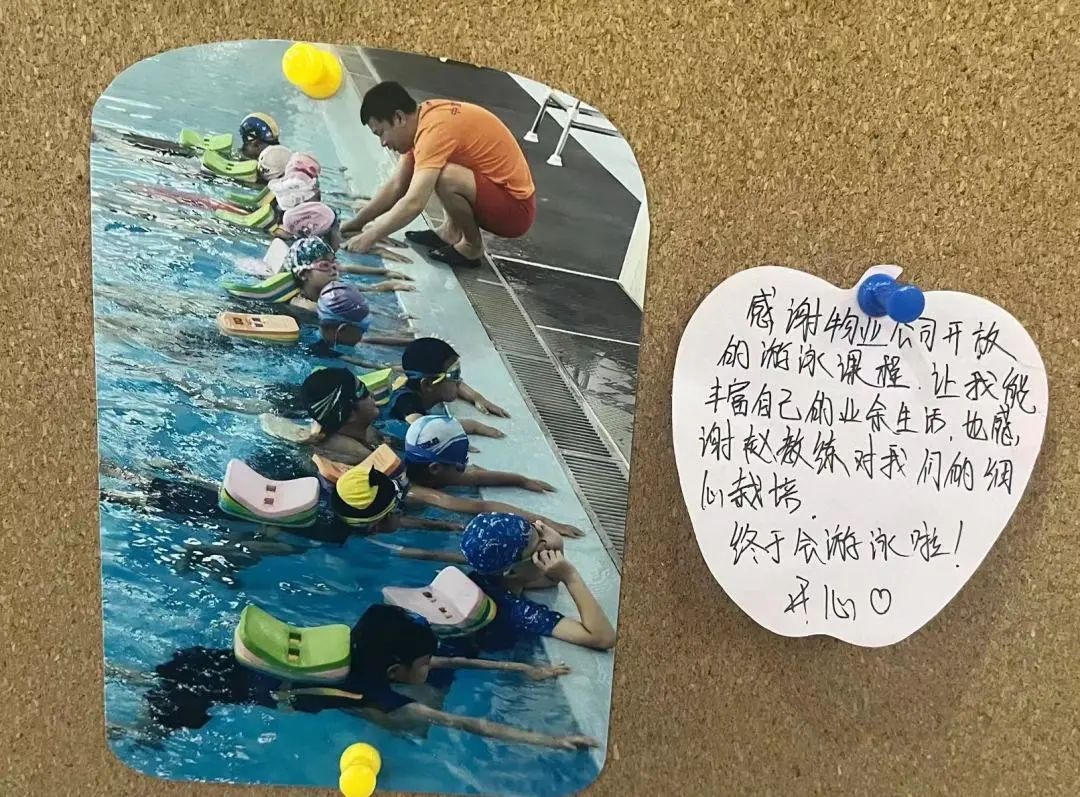 感谢物业公司开放
的游泳课程.让我能
丰富自己的业余生活.也感
谢赵教练对我们的细
心栽培.
终于会游泳啦!
开心♡